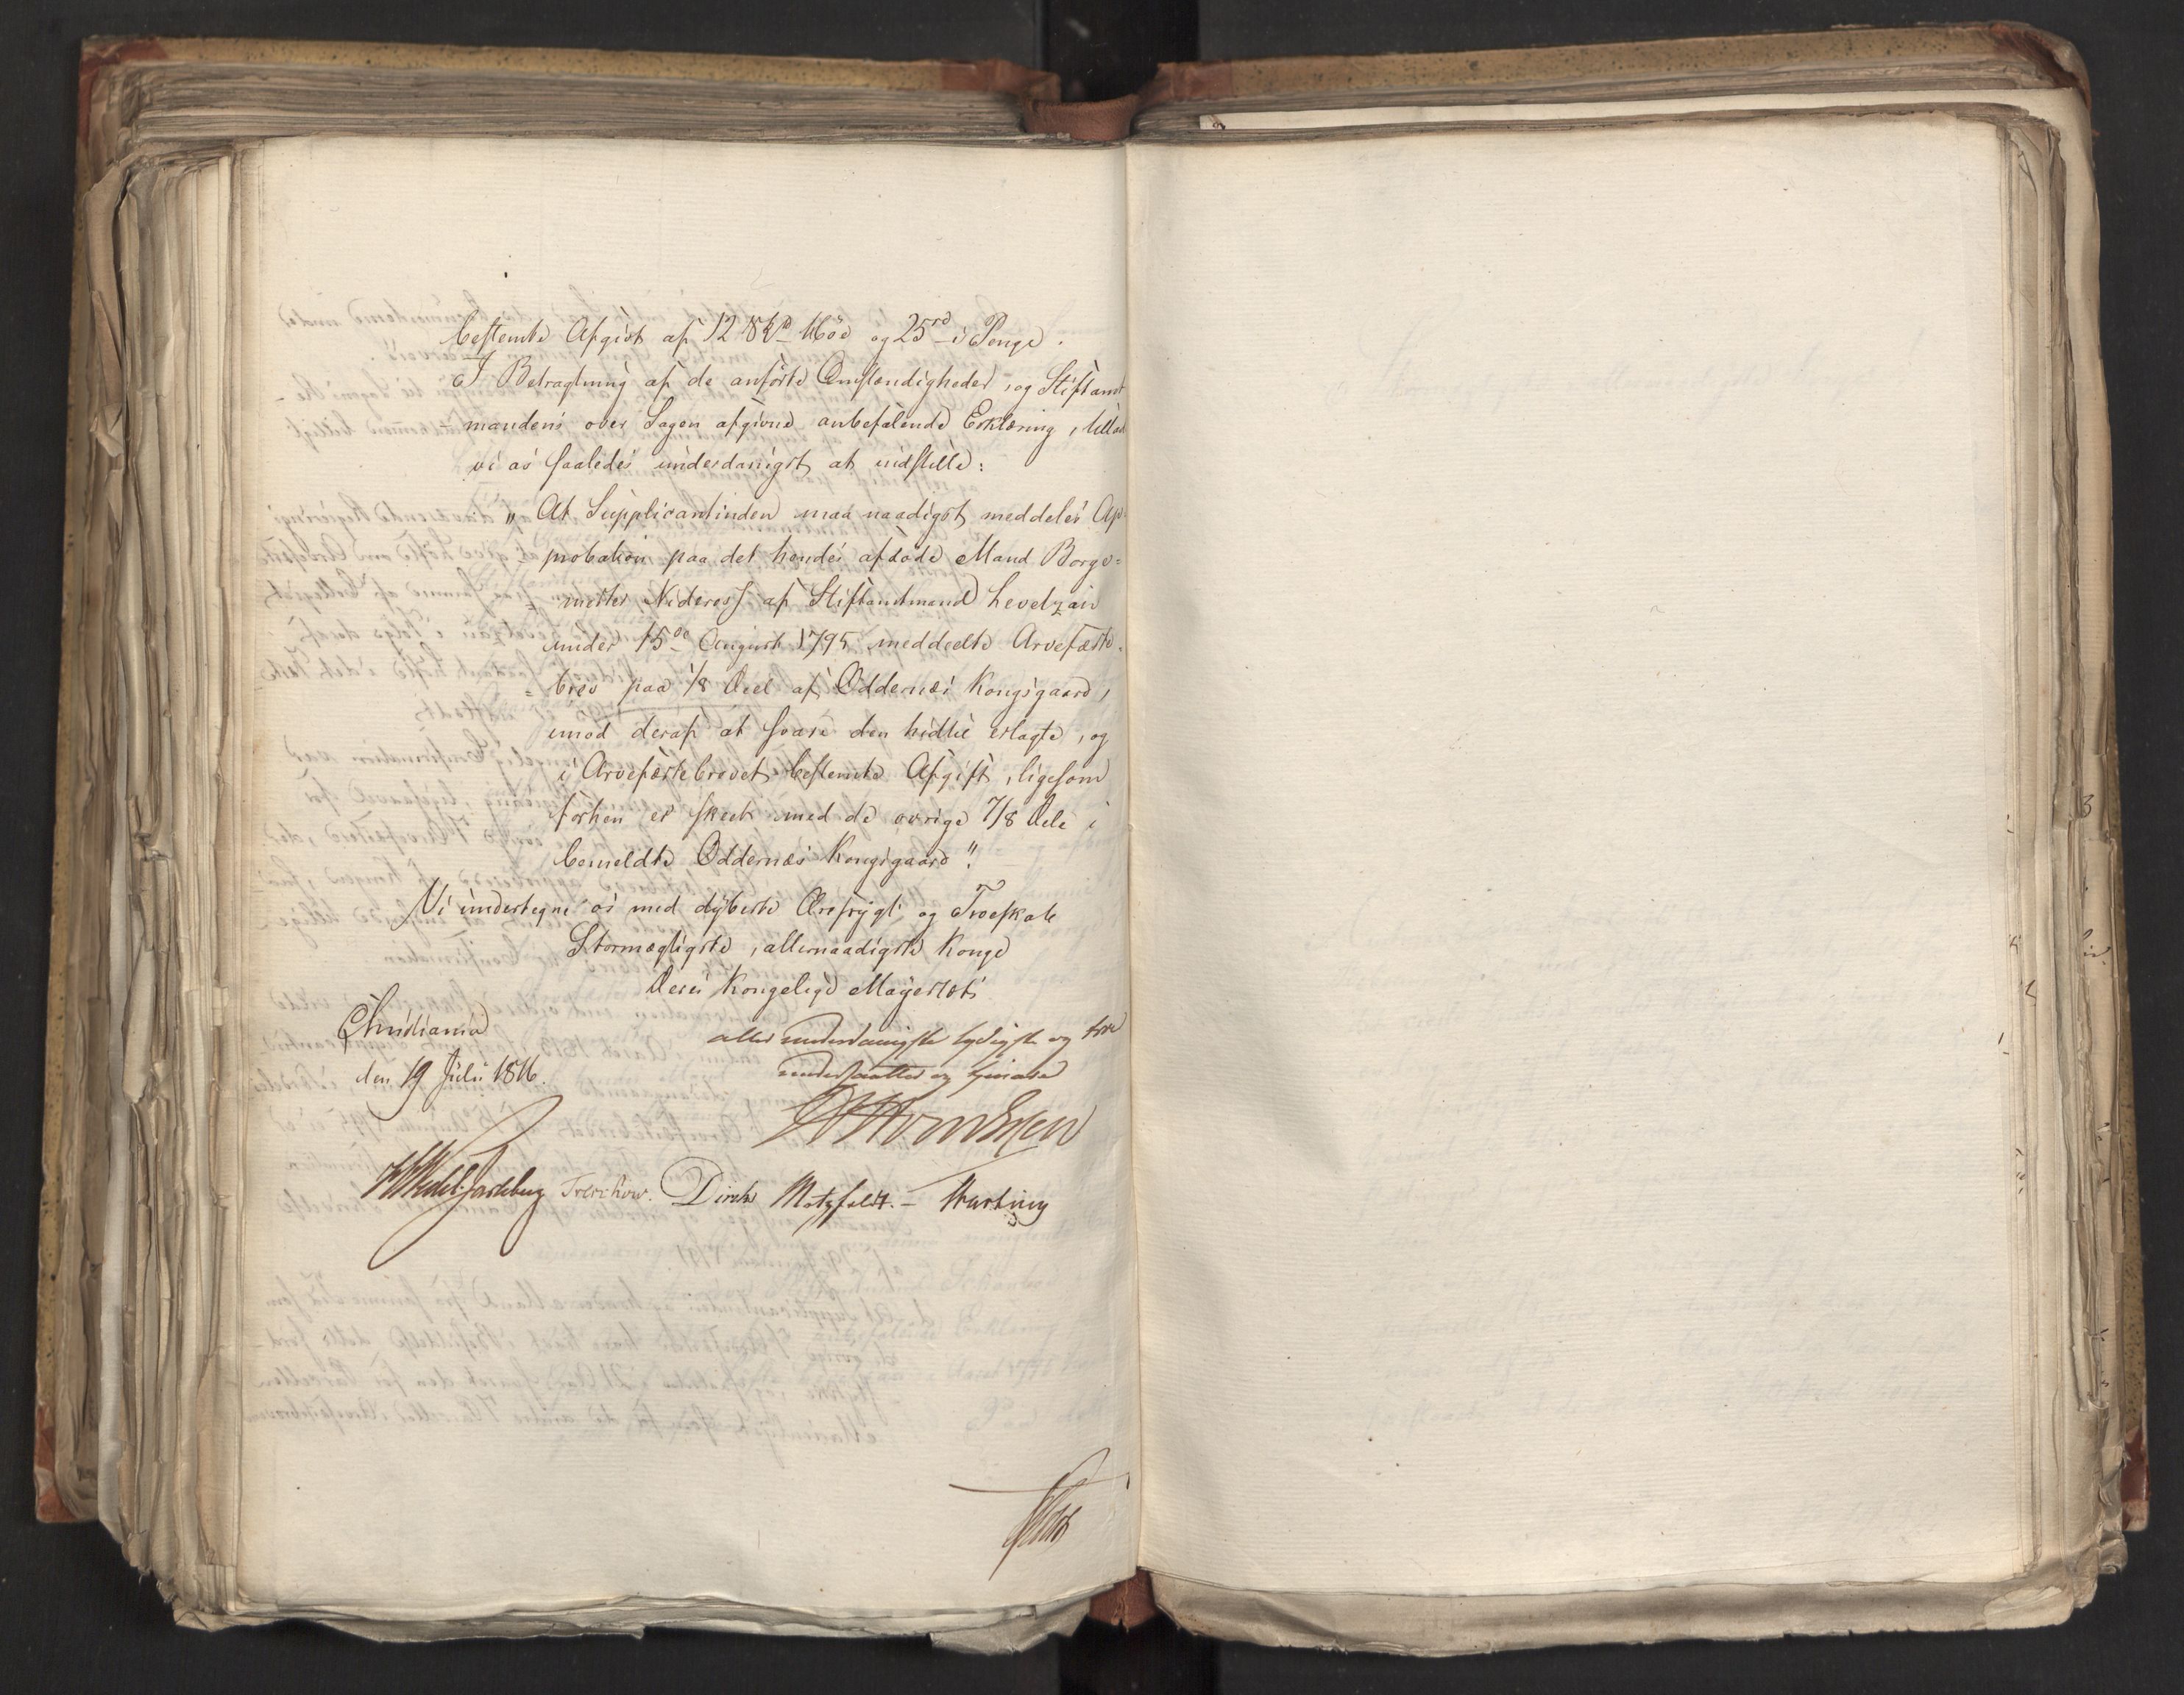 bestemte Afgivt af 12 Skpd Höe og 25rd i Penge.
I Betragtning af de anförte Omstændigheder, og Stiftamt
-mandens over Sagen afgivne anbefalende Erklæring, tillade
vi os saaledes underdanigst at indstille:
„At Supplicantinden maa naadigst meddeles Ap-
-probation paa det hendes afdöde Mand Borge-
mester Nideros af Stiftamtmand Levetzau
under 15de August 1795 meddeelte Arvefæste-
-brev paa 1/8 Deel af Oddernæs Kongsgaard,
imod deraf at svare den hidtil erlagte, og
i Arvefæstebrevet bestemte Afgift, ligesom
forhen er skeet med de övrige 7/8 Dele i
bemeldte Oddernæs Kongsgaard".
Vi undertegne os med dybeste Ærefrygt og Troeskab
Stormægtigste, allernaadigste Konge
Deres Kongelige Majestæts
Christiania
den 19 Julii 1816.
allerunderdanigste lydigste og troe
undersaatter og tienere
HWedel-Jarlsberg Treschow. Diriks Motzfeldt. - Krebting